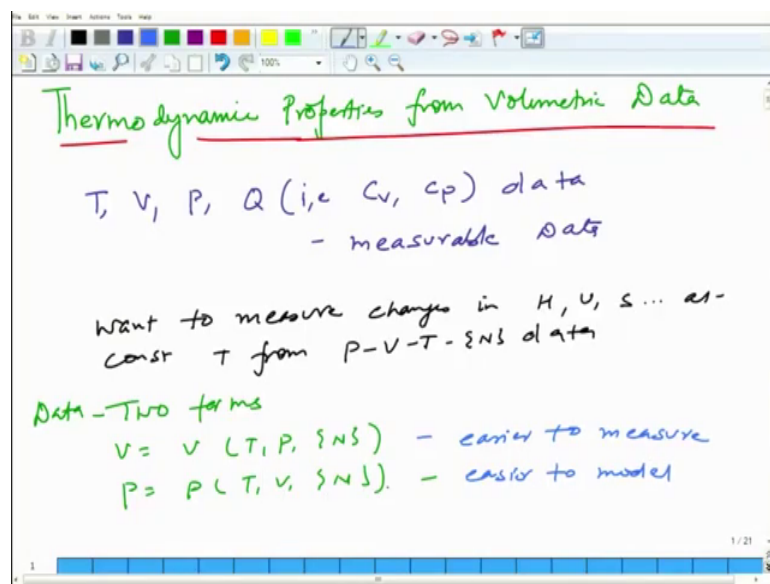 File Edit View Insert Actions Tools Help
100%
Thermodynamic Properties from Volumetric Data
T, V, P, Q (i,e Cv, Cp) data
- measurable Data
want to measure changes in H, U, S ... at
const T from P-V-T-{N} data
Data - TWO forms
V = V (T, P, {N}) - easier to measure
P = P (T, V, {N}). - easier to model
1 / 21
1